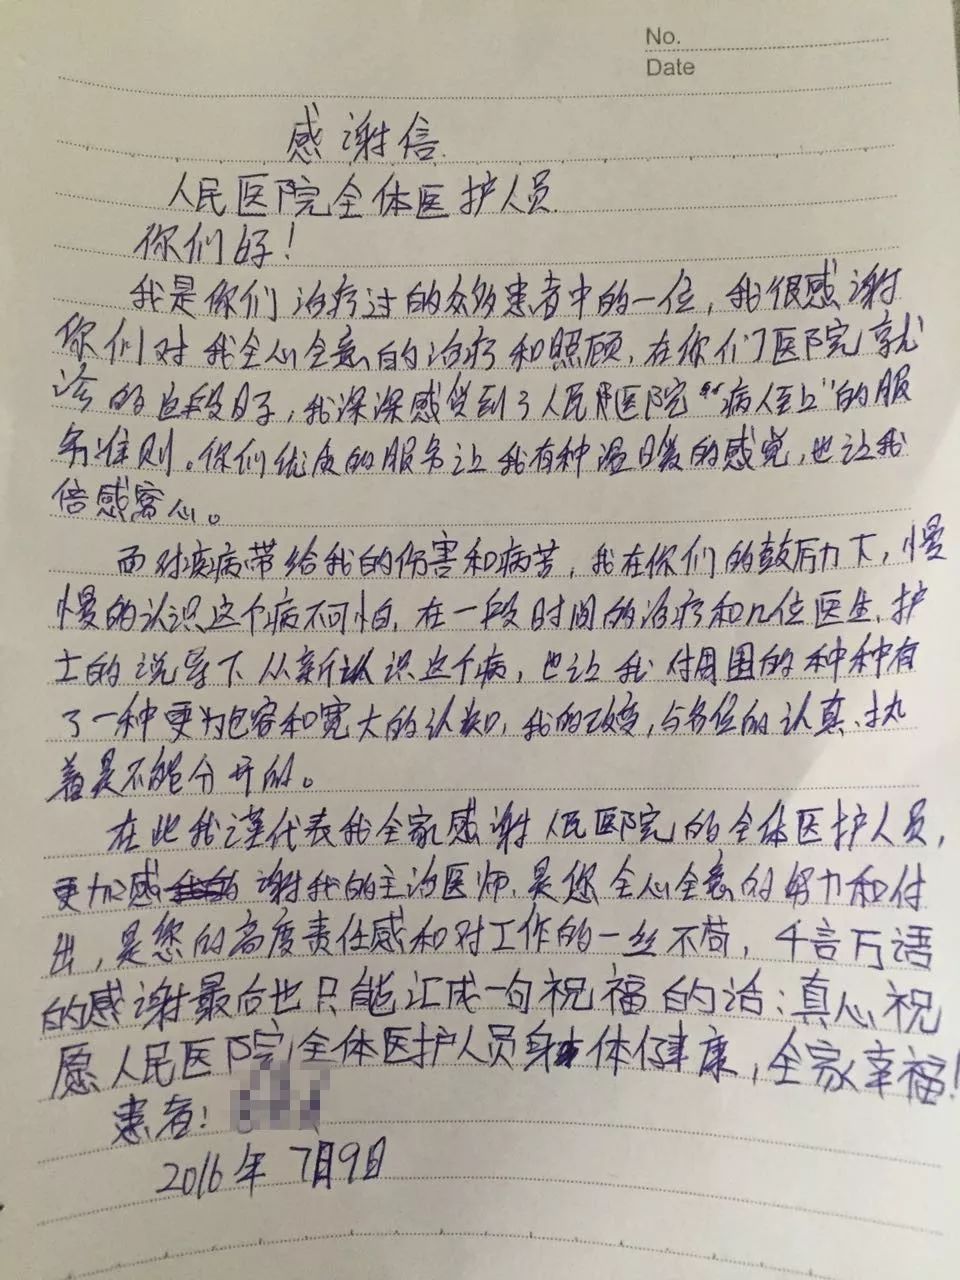 No.
Date
感谢信
人民医院全体医护人员
你们好！
我是你们治疗过的众多患者中的一位，我很感谢
你们对我全心全意的治疗和照顾，在你们医院就
诊的这段日子，我深深感觉到了人民医院“病人至上”的服
务准则。你们优质的服务让我有种温暖的感觉，也让我
倍感窝心。
面对疾病带给我的伤害和病苦，我在你们的鼓厉力下，慢
慢的认识这个病不可怕，在一段时间的治疗和几位医生、护
士的说导下从新认识这个病，也让我对周围的种种有
了一种更为包容和宽大的认知，我的改变，与各位的认真、执
着是不能分开的。
在此我谨代表我全家感谢人民医院的全体医护人员，
更加感谢我的主治医师，是您全心全意的努力和付
出，是您的高度责任感和对工作的一丝不苟，千言万语
的感谢最后也只能汇成一句祝福的话：真心祝
愿人民医院全体医护人员身体健康，全家幸福！
患者：
2016年7月9日